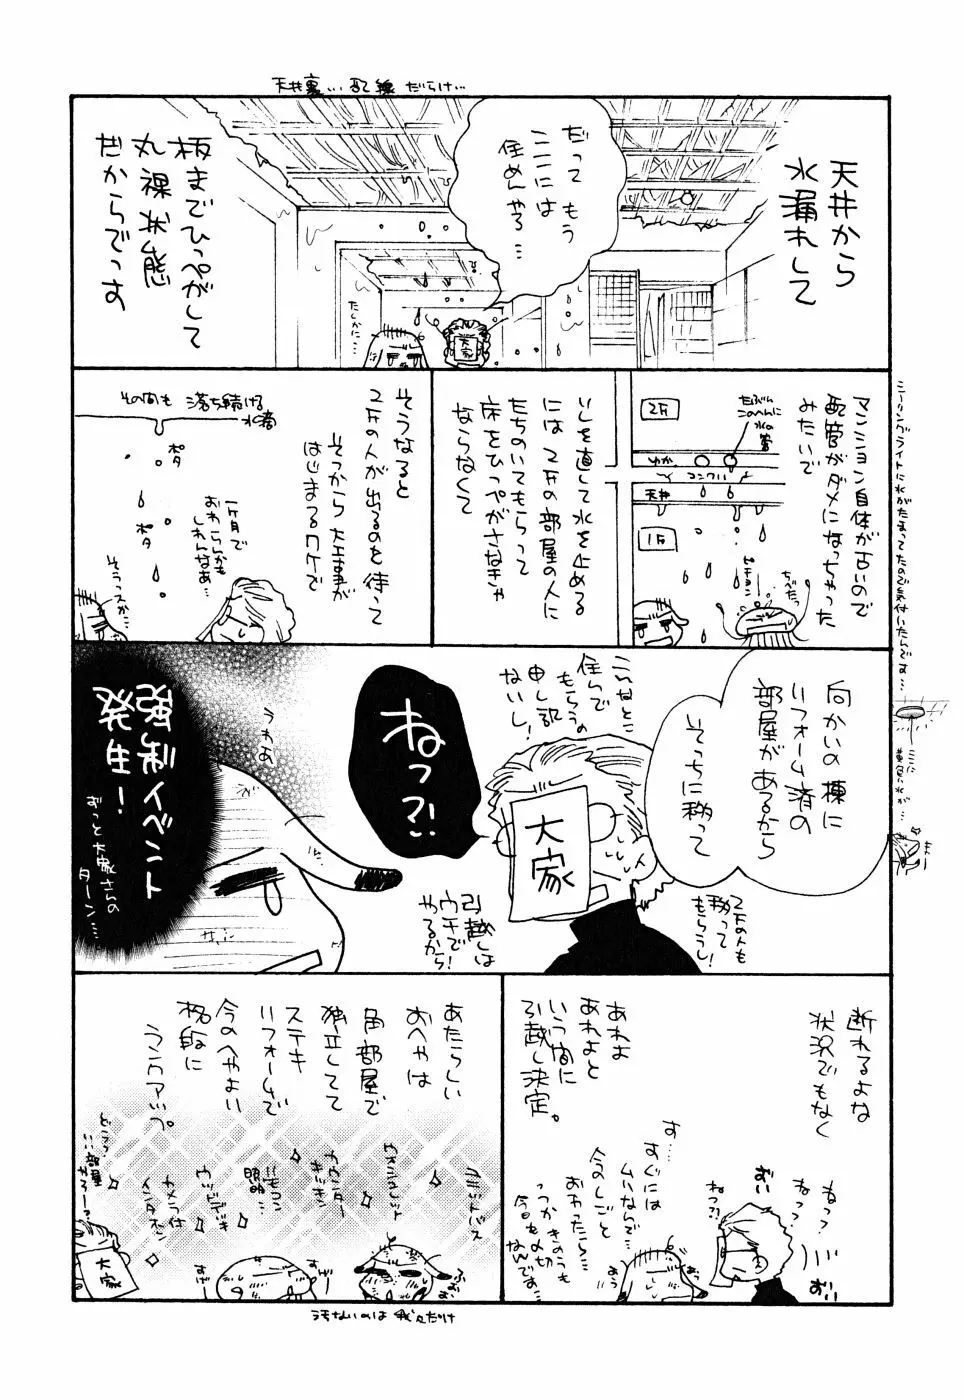 天井裏…配線だらけ…
天井から
水漏れして
だって もう
ここには
住めんやろ…
板までひっぺがして
丸裸状態
だからでっす
たしかに…
大家
マンション自体が古いので
配管がダメになっちゃった
みたいで
2F
たぶん
このへんに
水の管
ゆか
コンクリ
天井
1F
ピチョン
ちべたっ
シーリングライトに水がたまってたので気付いたんです…
ここに
黄色い水が…
いしを直して水を止める
には2Fの部屋の人に
たちのいてもらって
床をひっぺがさなきゃ
ならなくて
そうなると
2Fの人が出るのを待って
そっから大工事が
はじまるワケで
その間も 落ち続ける
水滴
ポタ
ポタ
一ヶ月で
おわらんかも
しれんなあ…
そうっスか…
向かいの棟に
リフォーム済の
部屋があるから
そっちに移って
2Fの人も
移って
もらうし!
こんなとこ
住んで
もらうの
申し訳
ないし!
大家
引越しは
ウチで
やるから!
ねっ?!
うわあ
強制イベント
発生!
ずっと大家さんの
ターン…
断れるよな
状況でもなく
あれよ
あれよと
いう間に
引越し決定。
ねっ?
ねっ?
おい
ねっ?!
おい
す…
すぐには
ムリなんで…
今のしごと
おわったら…
っつかきのうも
今日も〆切
なんですよ…
おう
あたらしい
おへやは
角部屋で
独立してて
ステキ
リフォームで
今のへやよい
格段に
ランクアップ。
カウンター
キッチン
リモコン
照明
ウッドデッキ
カメラ付
インタホン
どうっ?
…部屋
やろー?
大家
すげー
うちないのは 我々だけ